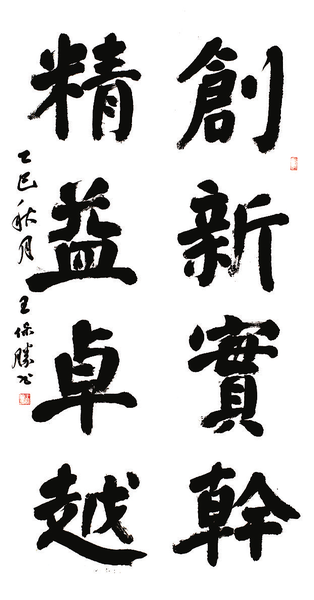 創新實幹
精益卓越
乙巳秋月 王保勝书